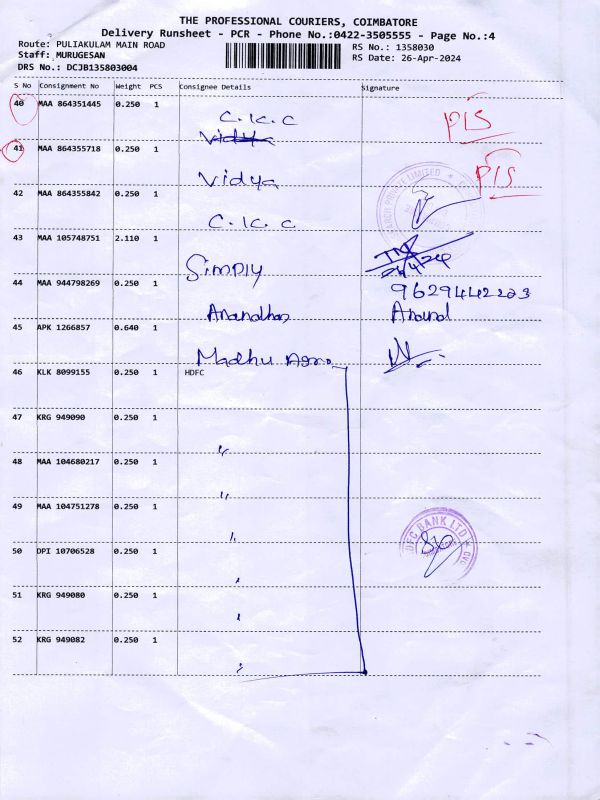 THE PROFESSIONAL COURIERS, COIMBATORE
Delivery Runsheet - PCR - Phone No.:0422-3505555 - Page No.:4
Route: PULIAKULAM MAIN ROAD
RS No.: 1358030
Staff: MURUGESAN
RS Date: 26-Apr-2024
DRS No.: DCJB135803004
S No Consignment No Weight PCS Consignee Details Signature
40 MAA 864351445 0.250 1
C.K.C
PIS
Vidya
41 MAA 864355718 0.250 1
Vidya
PIS
42 MAA 864355842 0.250 1
C.K.C
43 MAA 105748751 2.110 1
Simply
26/4/24
44 MAA 944798269 0.250 1
9629442223
Anandhan Anand
45 APK 1266857 0.640 1
Madhu Agro
46 KLK 8099155 0.250 1 HDFC
47 KRG 949090 0.250 1
"
48 MAA 104680217 0.250 1
"
49 MAA 104751278 0.250 1
"
DFC BANK LTD
50 DPI 10706528 0.250 1
"
51 KRG 949080 0.250 1
"
52 KRG 949082 0.250 1
"